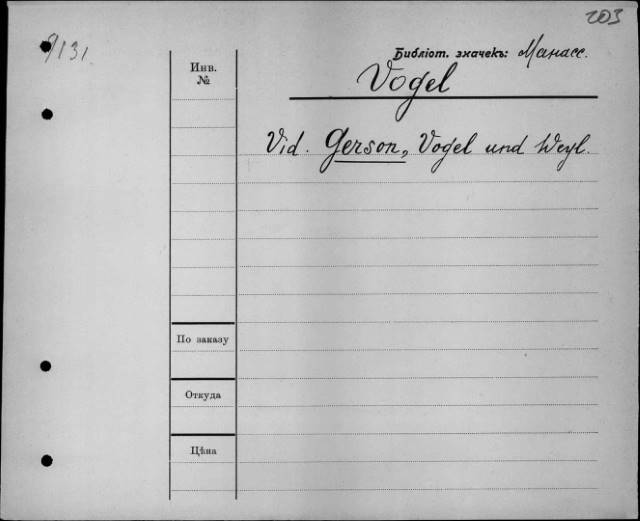 203
9131.
Библіот. значекъ: Манасс.
Инв.
№
Vogel
Vid. Gerson, Vogel und Weyl.
По заказу
Откуда
Цѣна